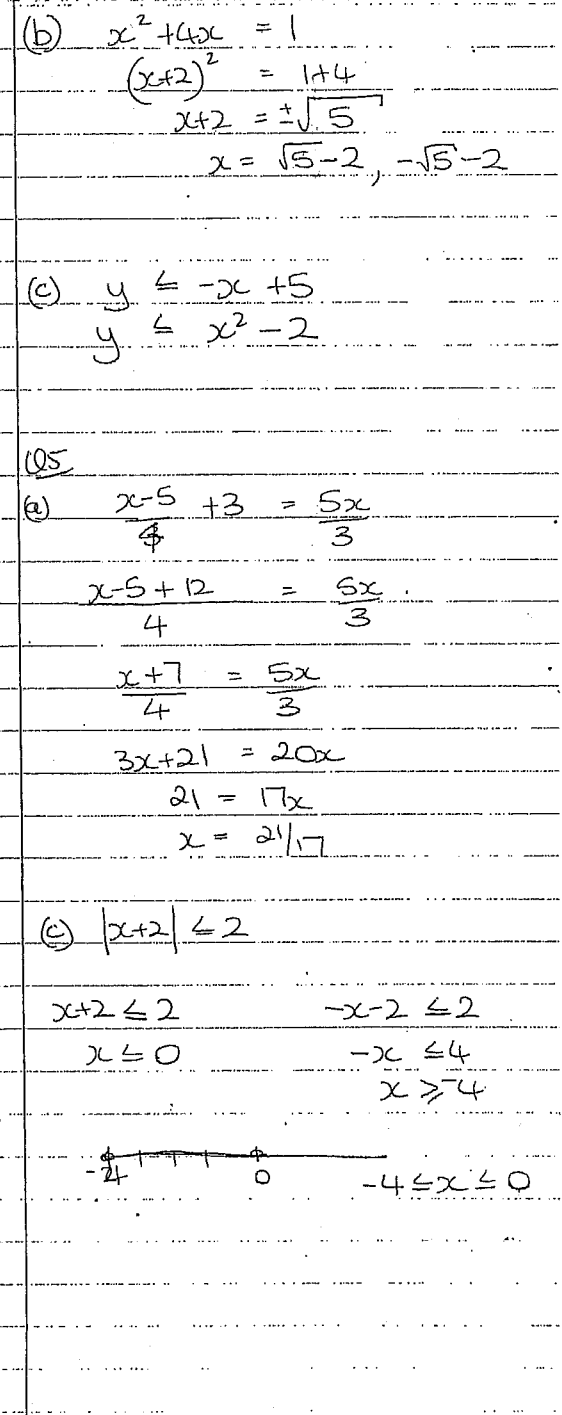 (b) x² + 4x = 1
(x+2)² = 1+4
x+2 = ±√5
x = √5-2, -√5-2
(c) y ≤ -x + 5
y ≤ x² - 2
Q5
(a) (x-5)/4 + 3 = 5x/3
(x-5+12)/4 = 5x/3
(x+7)/4 = 5x/3
3x+21 = 20x
21 = 17x
x = 21/17
(c) |x+2| ≤ 2
x+2 ≤ 2 -x-2 ≤ 2
x ≤ 0 -x ≤ 4
x ≥ -4
-4 0 -4 ≤ x ≤ 0